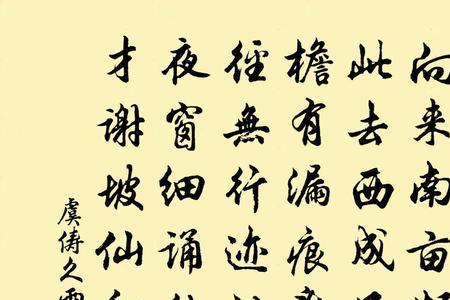 向来南亩
此去西成
檐有漏痕
徑無行迹
夜窗细诵
才谢坡仙
虞儔久